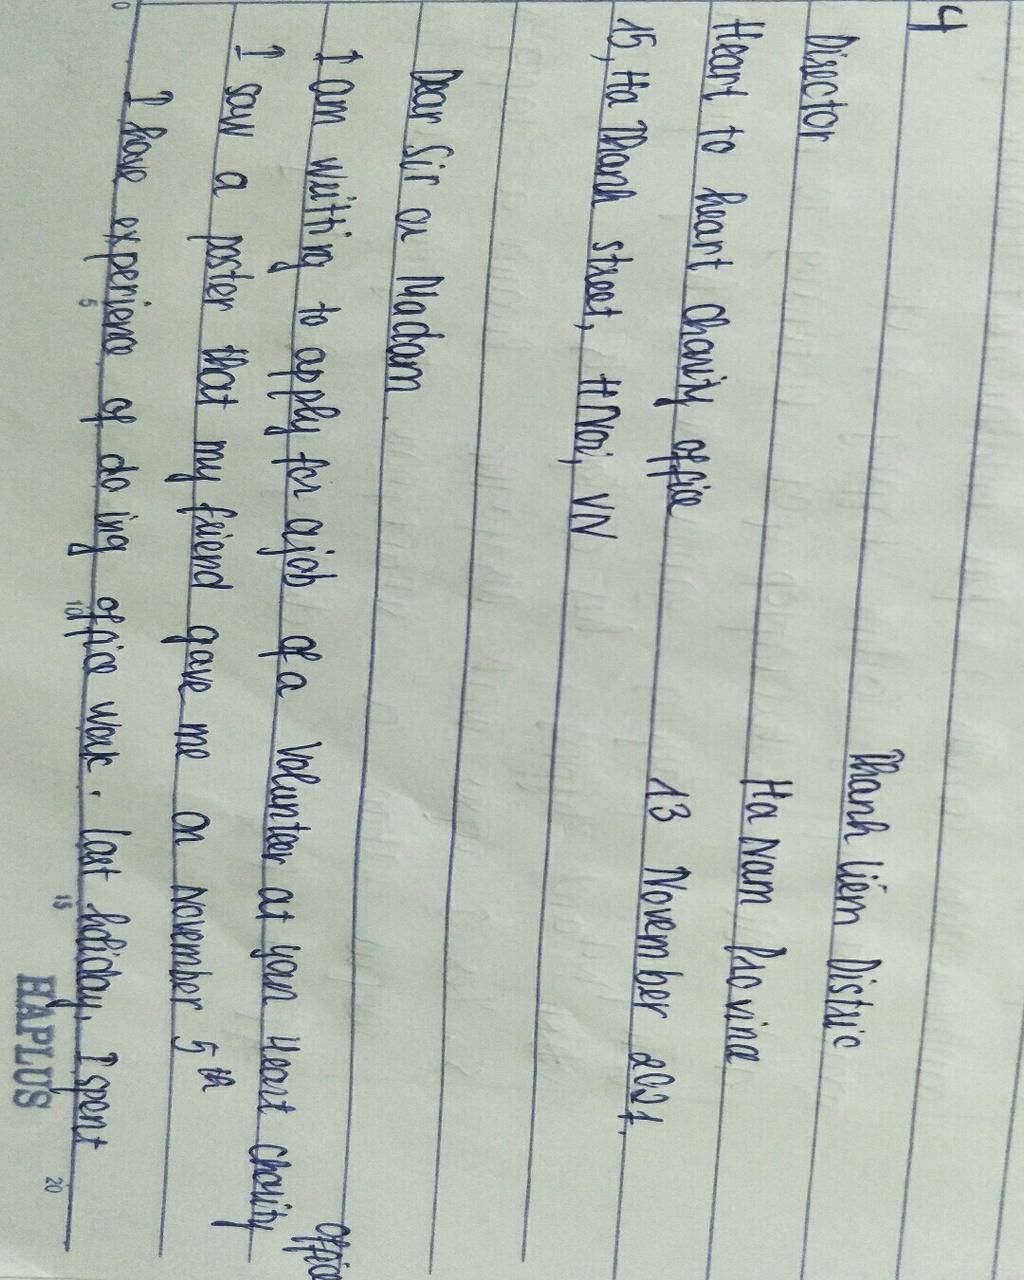 4
Thanh Liêm Distric
Director
Ha Nam Province
Heart to heart charity office
13 November 2021.
15, Ha Thanh street, HNoi, VN
Dear Sir or Madam
I am writting to apply for a job of a volunteer at your Heart charity office
I saw a poster that my friend gave me on November 5th
I have experience of do ing office work. last holiday, I spent
0 5 10 15 20
HAPLUS